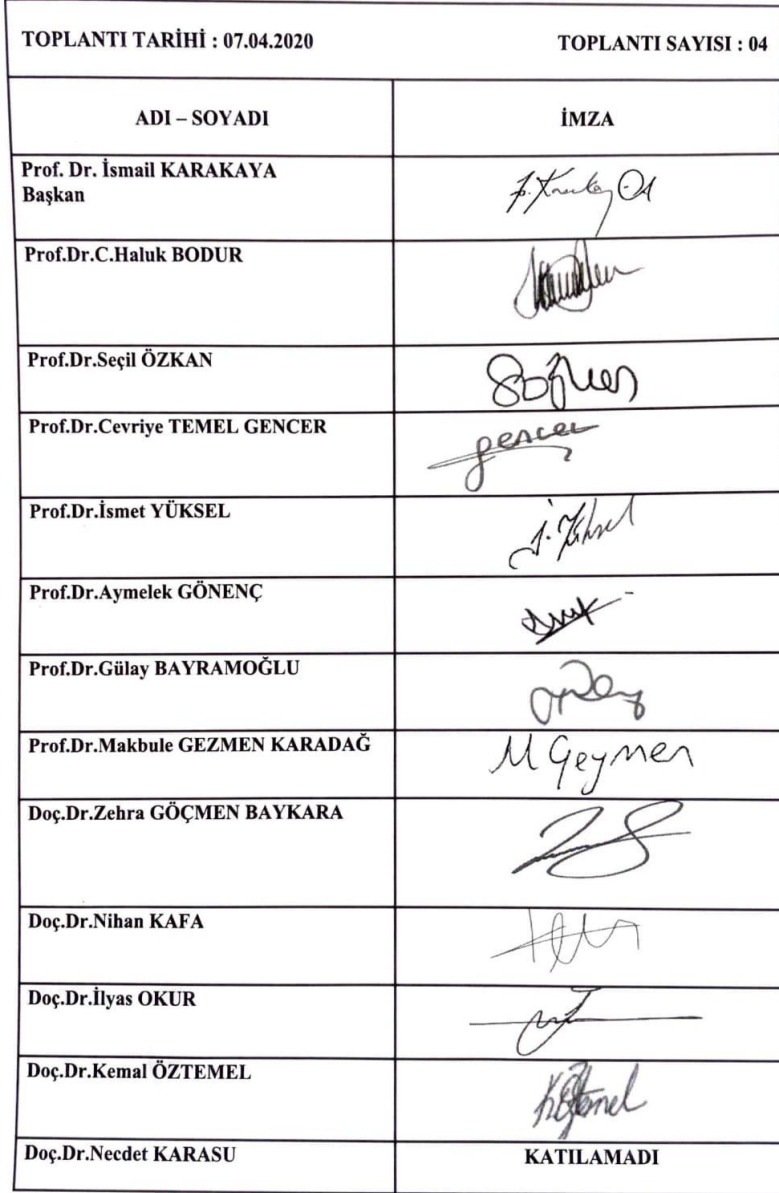 TOPLANTI TARİHİ : 07.04.2020 TOPLANTI SAYISI : 04
ADI – SOYADI İMZA
Prof. Dr. İsmail KARAKAYA
Başkan
Prof.Dr.C.Haluk BODUR
Prof.Dr.Seçil ÖZKAN
Prof.Dr.Cevriye TEMEL GENCER
gencer
Prof.Dr.İsmet YÜKSEL
Prof.Dr.Aymelek GÖNENÇ
Prof.Dr.Gülay BAYRAMOĞLU
Prof.Dr.Makbule GEZMEN KARADAĞ
M Gezmen
Doç.Dr.Zehra GÖÇMEN BAYKARA
Doç.Dr.Nihan KAFA
Doç.Dr.İlyas OKUR
Doç.Dr.Kemal ÖZTEMEL
Doç.Dr.Necdet KARASU KATILAMADI